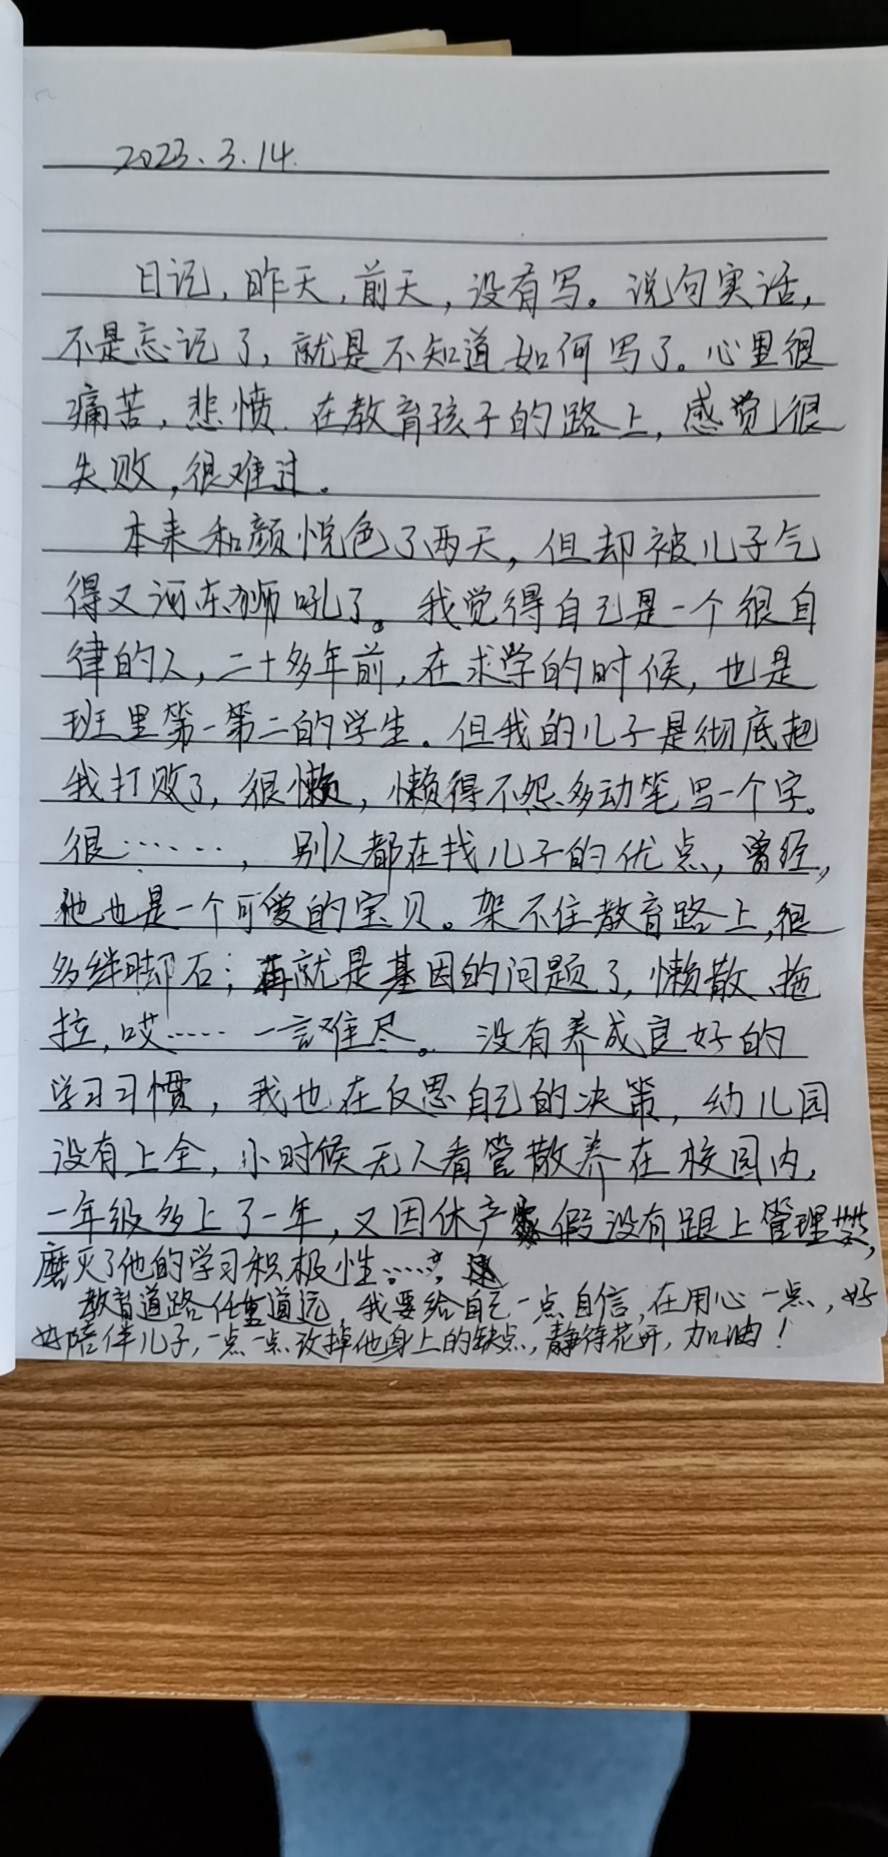 2023.3.14.
日记,昨天,前天,没有写。说句实话,
不是忘记了,就是不知道如何写了。心里很
痛苦,悲愤.在教育孩子的路上,感觉很
失败,很难过。
本来和颜悦色了两天,但却被儿子气
得又河东狮吼了。我觉得自己是一个很自
律的人,二十多年前,在求学的时候,也是
班里第一第二的学生。但我的儿子是彻底把
我打败了,很懒,懒得不愿多动笔写一个字。
很……,别人都在找儿子的优点,曾经,
他也是一个可爱的宝贝。架不住教育路上,很
多绊脚石;再就是基因的问题了,懒散、拖
拉,哎……一言难尽。没有养成良好的
学习习惯,我也在反思自己的决策,幼儿园
没有上全,小时候无人看管散养在校园内,
一年级多上了一年,又因休产假没有跟上管理,
磨灭了他的学习积极性……,
教育道路任重道远,我要给自己一点自信,在用心一点,好
好陪伴儿子,一点一点改掉他身上的缺点,静待花开,加油!